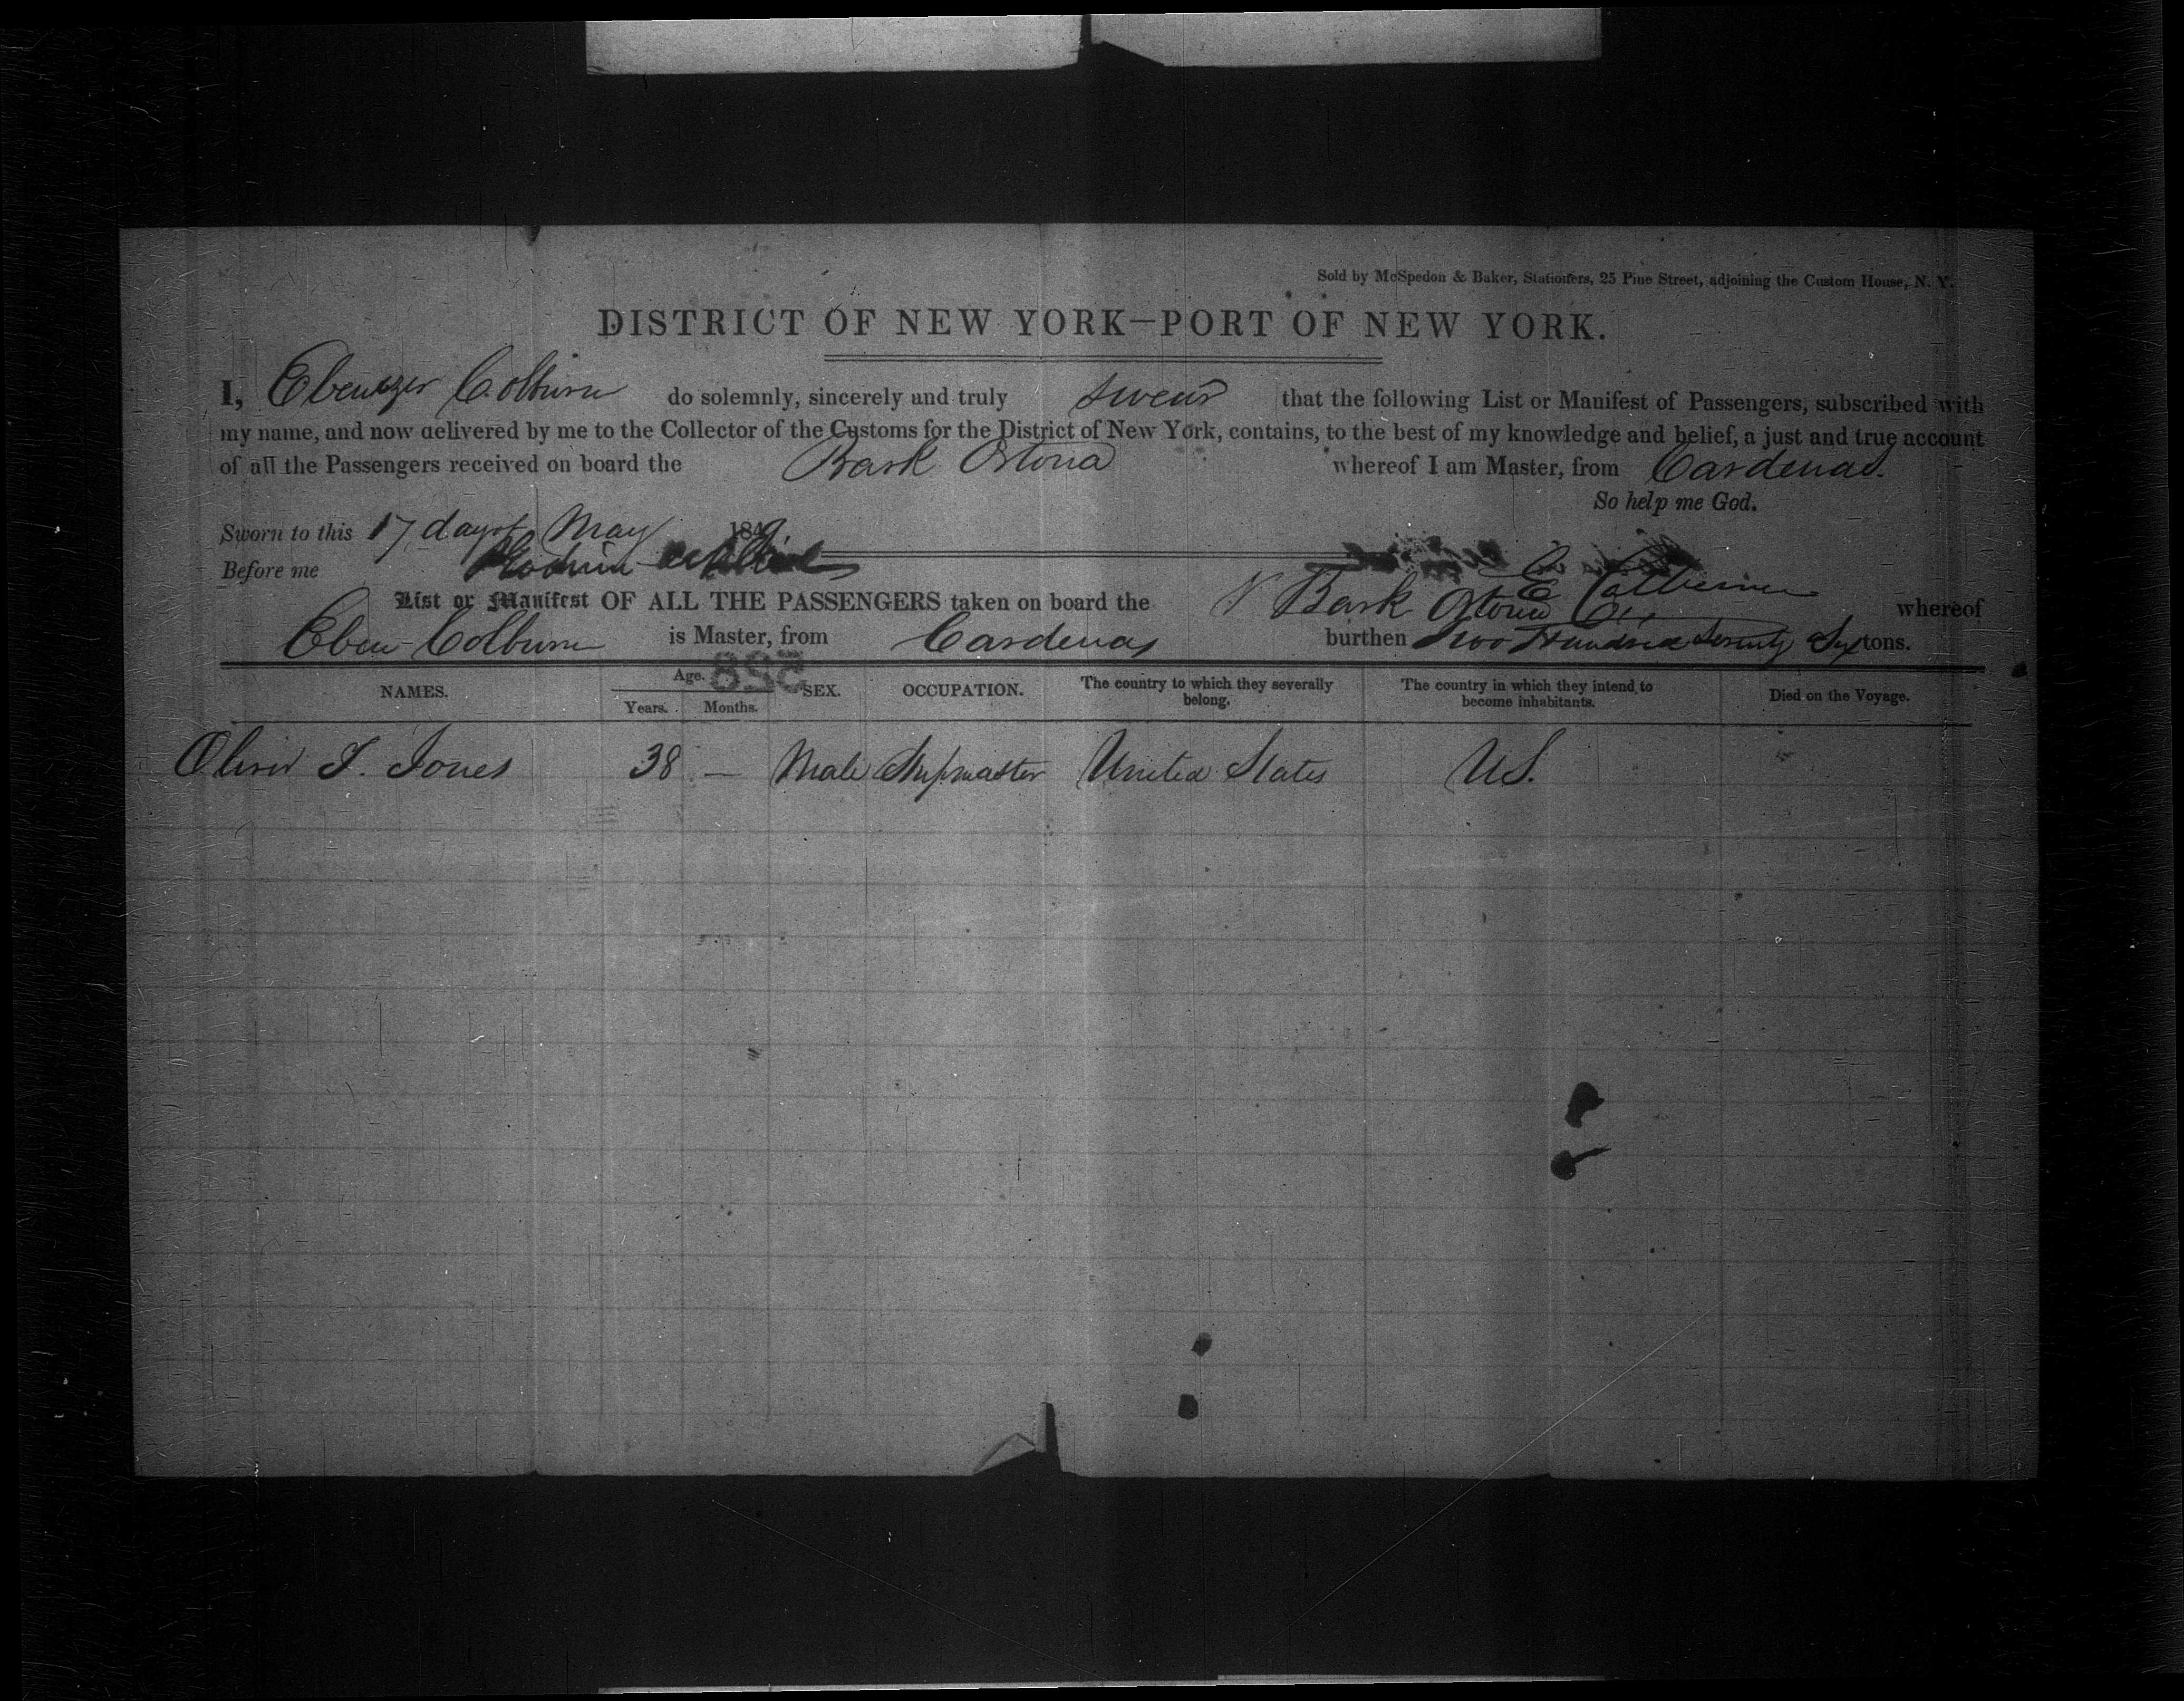 Sold by McSpedon & Baker, Stationers, 25 Pine Street, adjoining the Custom House, N. Y.
DISTRICT OF NEW YORK—PORT OF NEW YORK.
I, Ebenezer Colburn do solemnly, sincerely and truly swear that the following List or Manifest of Passengers, subscribed with
my name, and now delivered by me to the Collector of the Customs for the District of New York, contains, to the best of my knowledge and belief, a just and true account
of all the Passengers received on board the Bark whereof I am Master, from Cardenas.
So help me God.
Sworn to this 17 day of May 184
Before me
List or Manifest OF ALL THE PASSENGERS taken on board the Bark whereof
Eben Colburn is Master, from Cardenas burthen Two Hundred Seventy Six tons.
528
NAMES. Age. Years. Months. SEX. OCCUPATION. The country to which they severally belong. The country in which they intend to become inhabitants. Died on the Voyage.
Oliver J. Jones 38 — Male Shipmaster United States U.S.